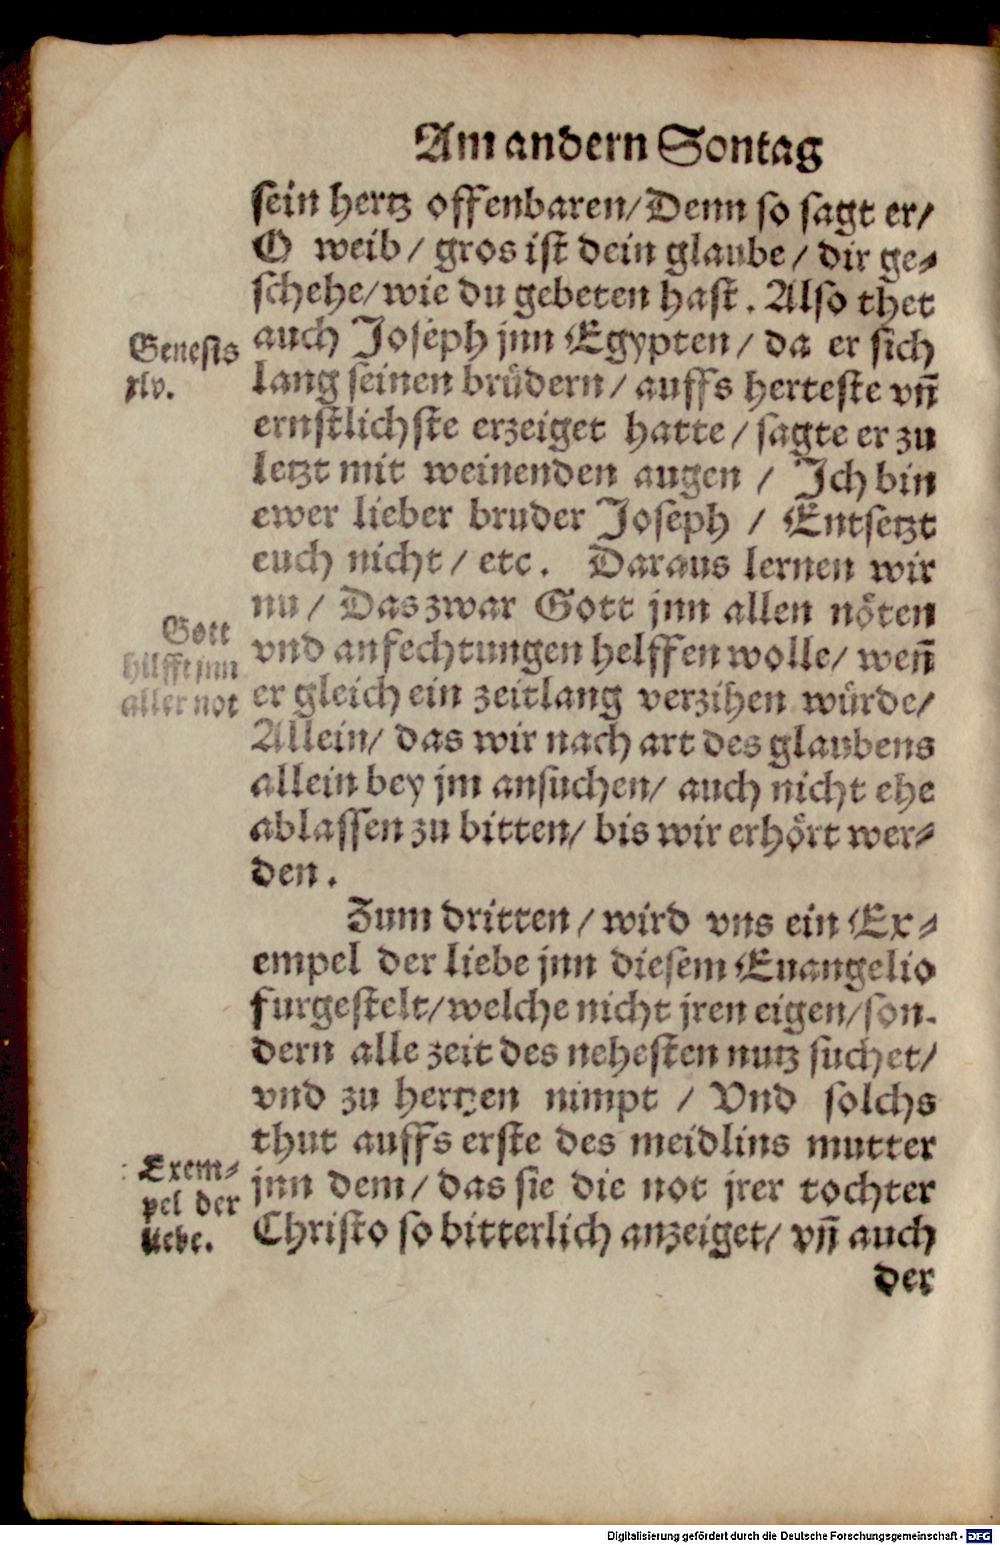 Am andern Sontag
sein hertz offenbaren/Denn so sagt er/
O weib/ gros ist dein glaube/ dir ge⸗
schehe/wie du gebeten hast. Also thet
Genesis
xlv.
auch Joseph jnn Egypten/ da er sich
lang seinen brüdern/ auffs herteste vn̄
ernstlichste erzeiget hatte/ sagte er zu
letzt mit weinenden augen / Ich bin
ewer lieber bruder Joseph / Entsetzt
euch nicht/ etc. Daraus lernen wir
nu/ Das zwar Gott jnn allen nöten
Gott
hilfft jnn
aller not
vnd anfechtungen helffen wolle/ wen̄
er gleich ein zeitlang verzihen würde/
Allein/ das wir nach art des glaubens
allein bey jm ansuchen/ auch nicht ehe
ablassen zu bitten/ bis wir erhört wer⸗
den.
Zum dritten/ wird vns ein Ex⸗
empel der liebe jnn diesem Euangelio
furgestelt/welche nicht jren eigen/son-
dern alle zeit des nehesten nutz suchet/
vnd zu hertzen nimpt / Vnd solchs
thut auffs erste des meidlins mutter
Exem⸗
pel der
liebe.
jnn dem/ das sie die not jrer tochter
Christo so bitterlich anzeiget/ vn̄ auch
der
Digitalisierung gefördert durch die Deutsche Forschungsgemeinschaft - DFG